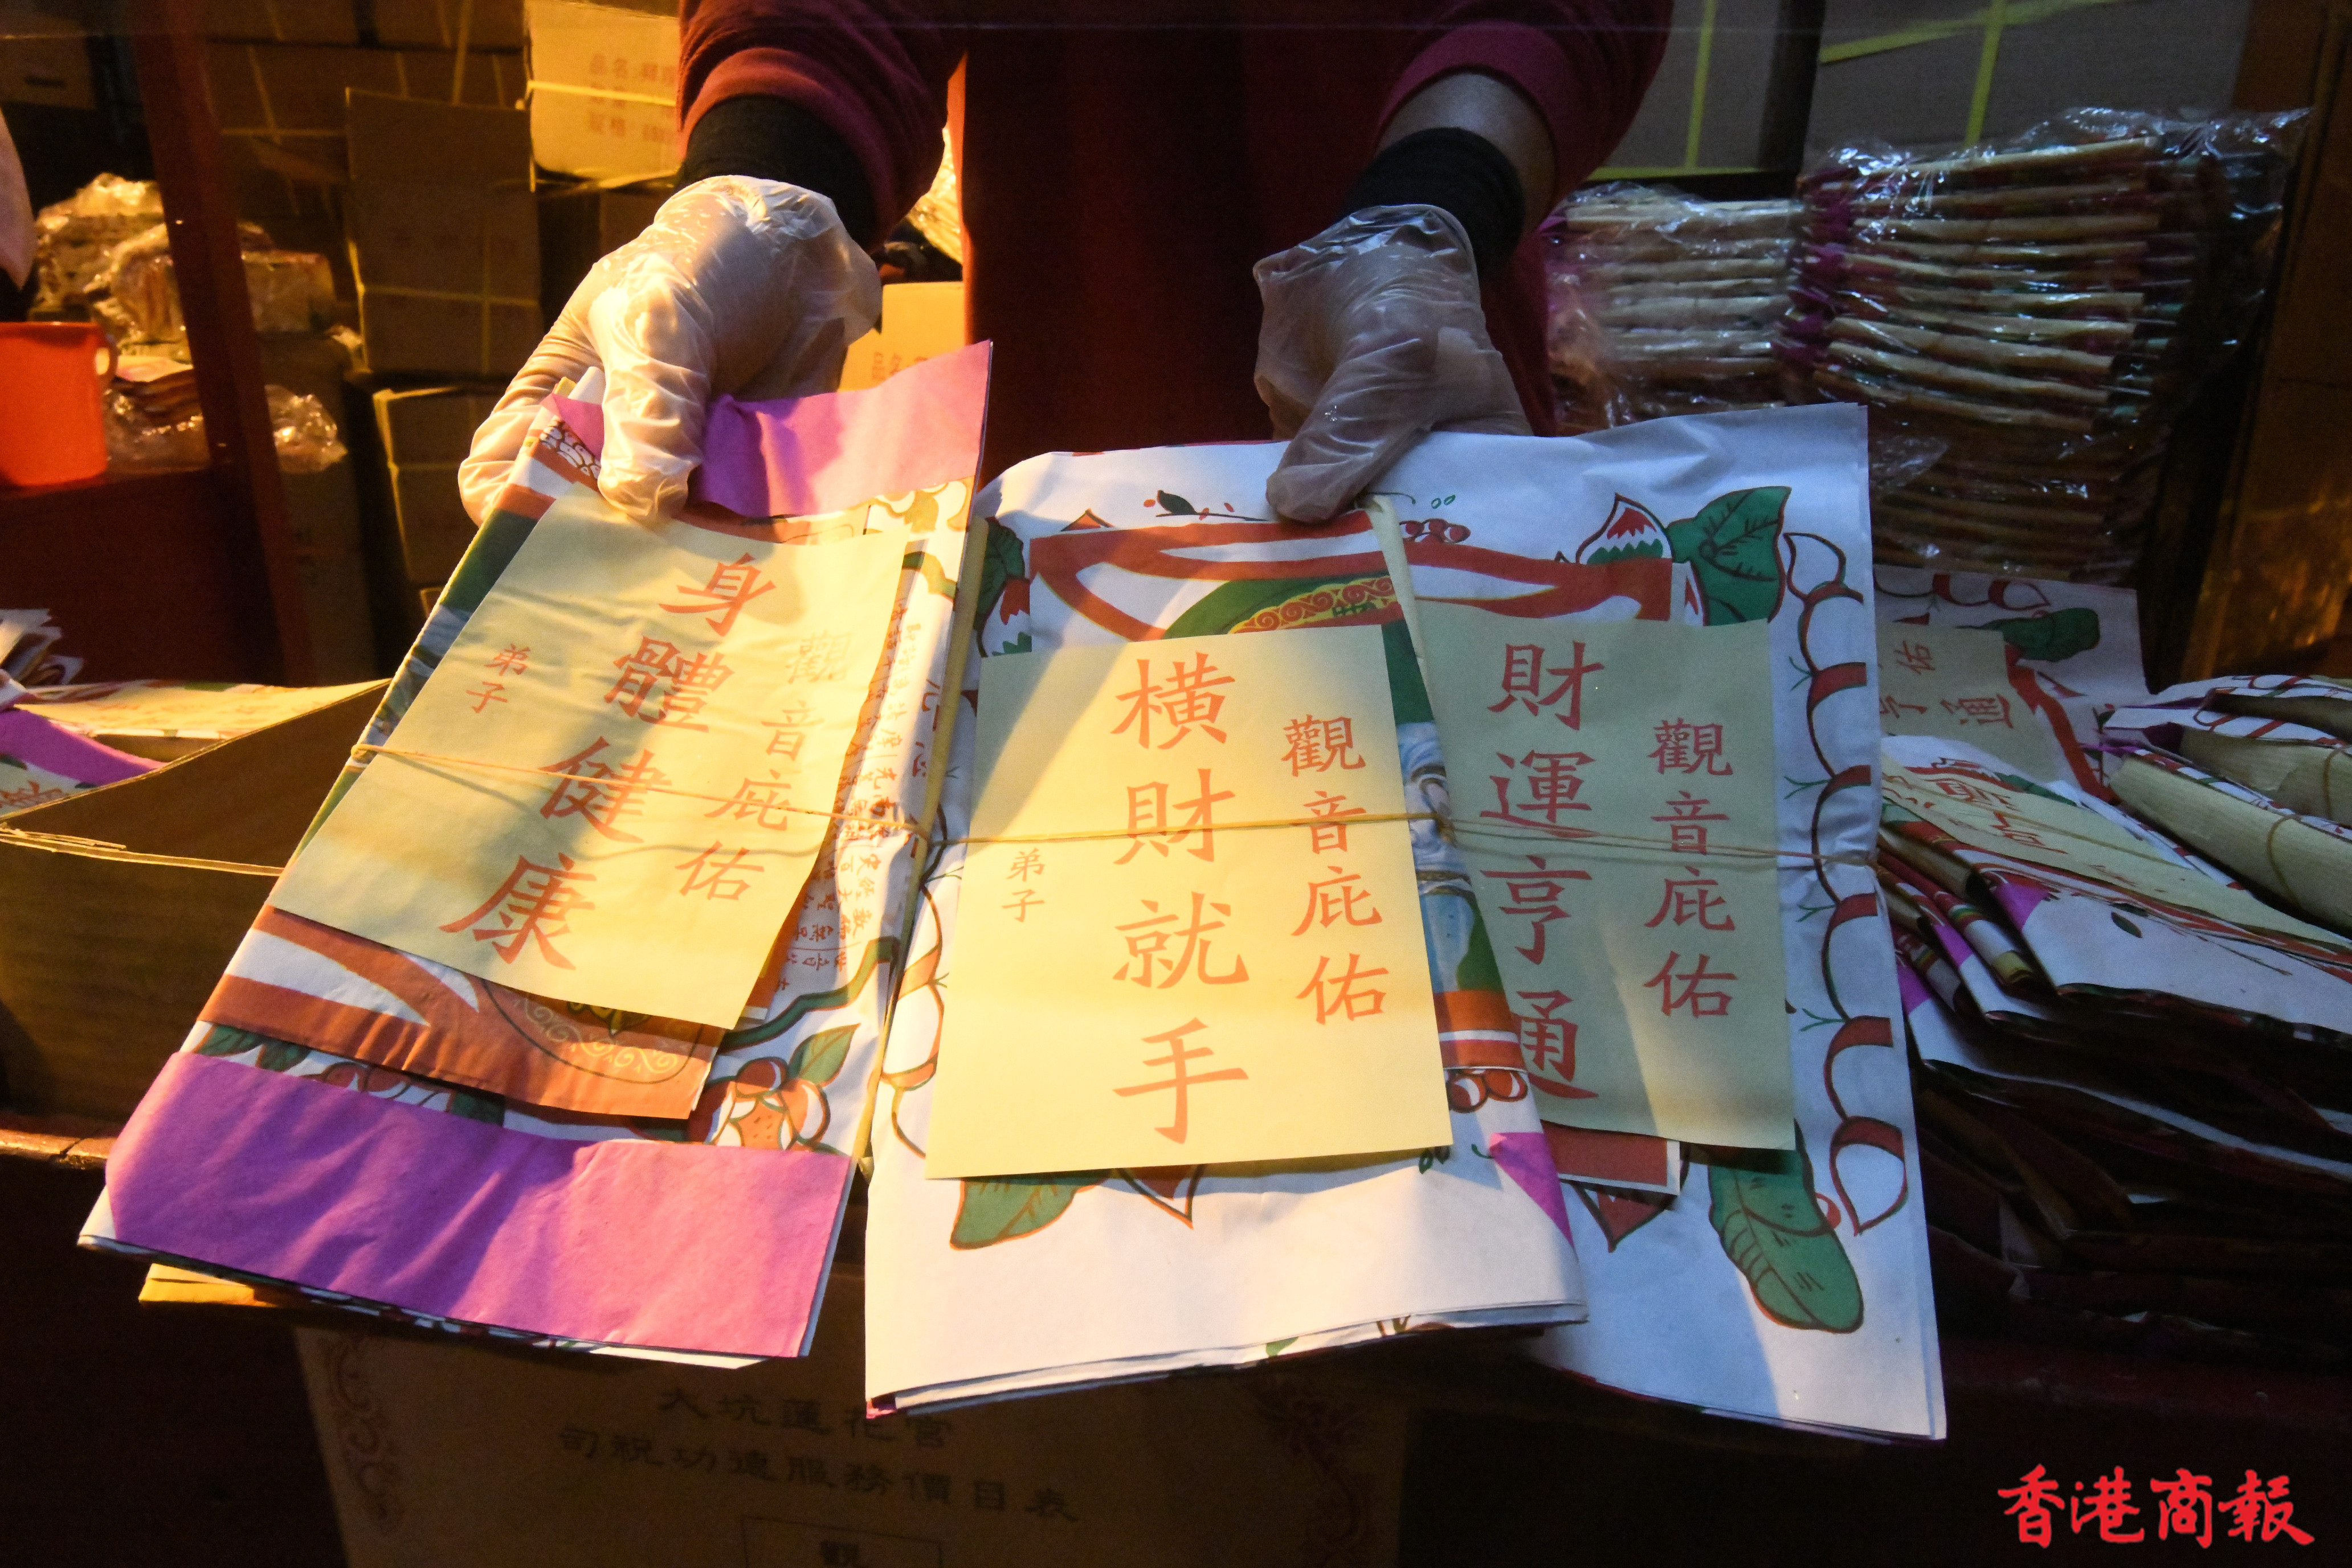 觀音庇佑
身體健康
弟子
觀音庇佑
橫財就手
弟子
觀音庇佑
財運亨通
佑
亨通
品名
品名
大坑蓮花宮
司祝功德服務價目表
觀
香港商報